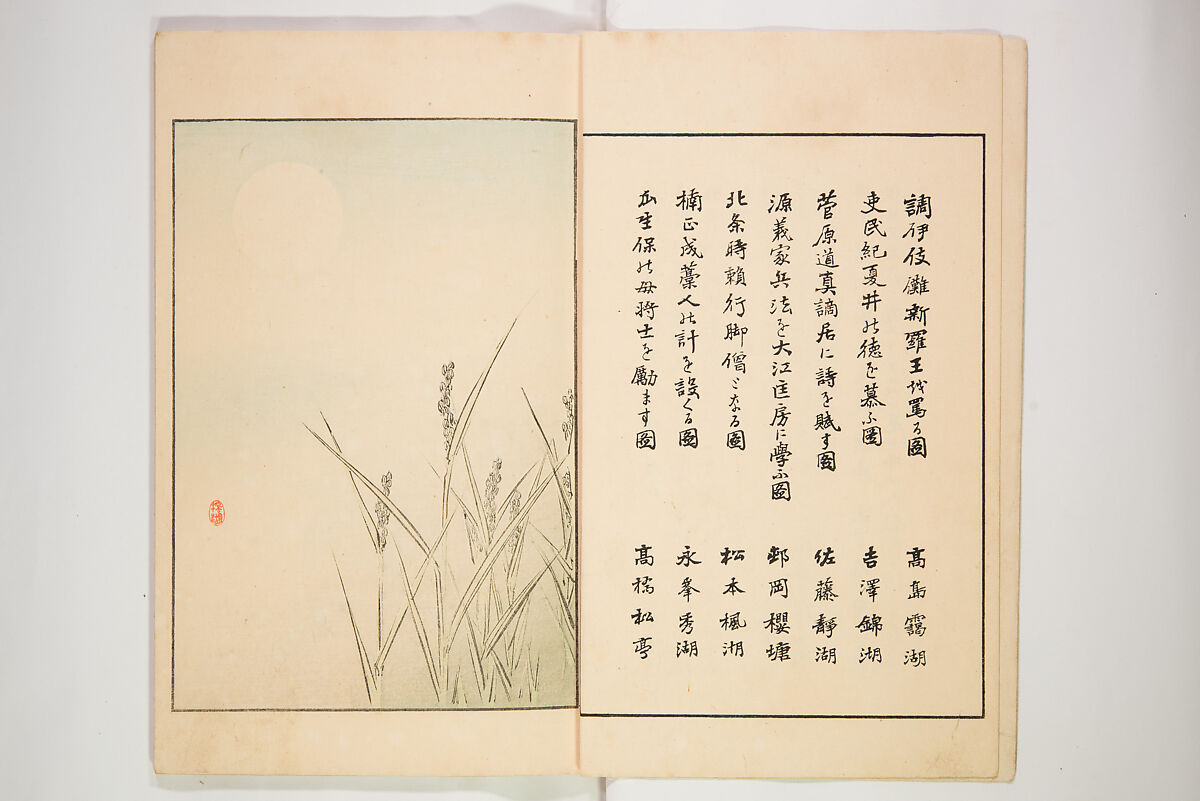 調伊伎儺新羅王を罵る圖
吏民紀夏井の徳を慕ふ圖
菅原道真謫居に詩を賦す圖
源義家兵法を大江匡房に學ふ圖
北条時賴行脚僧となる圖
楠正成藁人の計を設くる圖
瓜生保の母将士を勵ます圖
髙島靄湖
吉澤錦湖
佐藤靜湖
邨岡櫻塘
松本楓湖
永峯秀湖
髙橋松亭